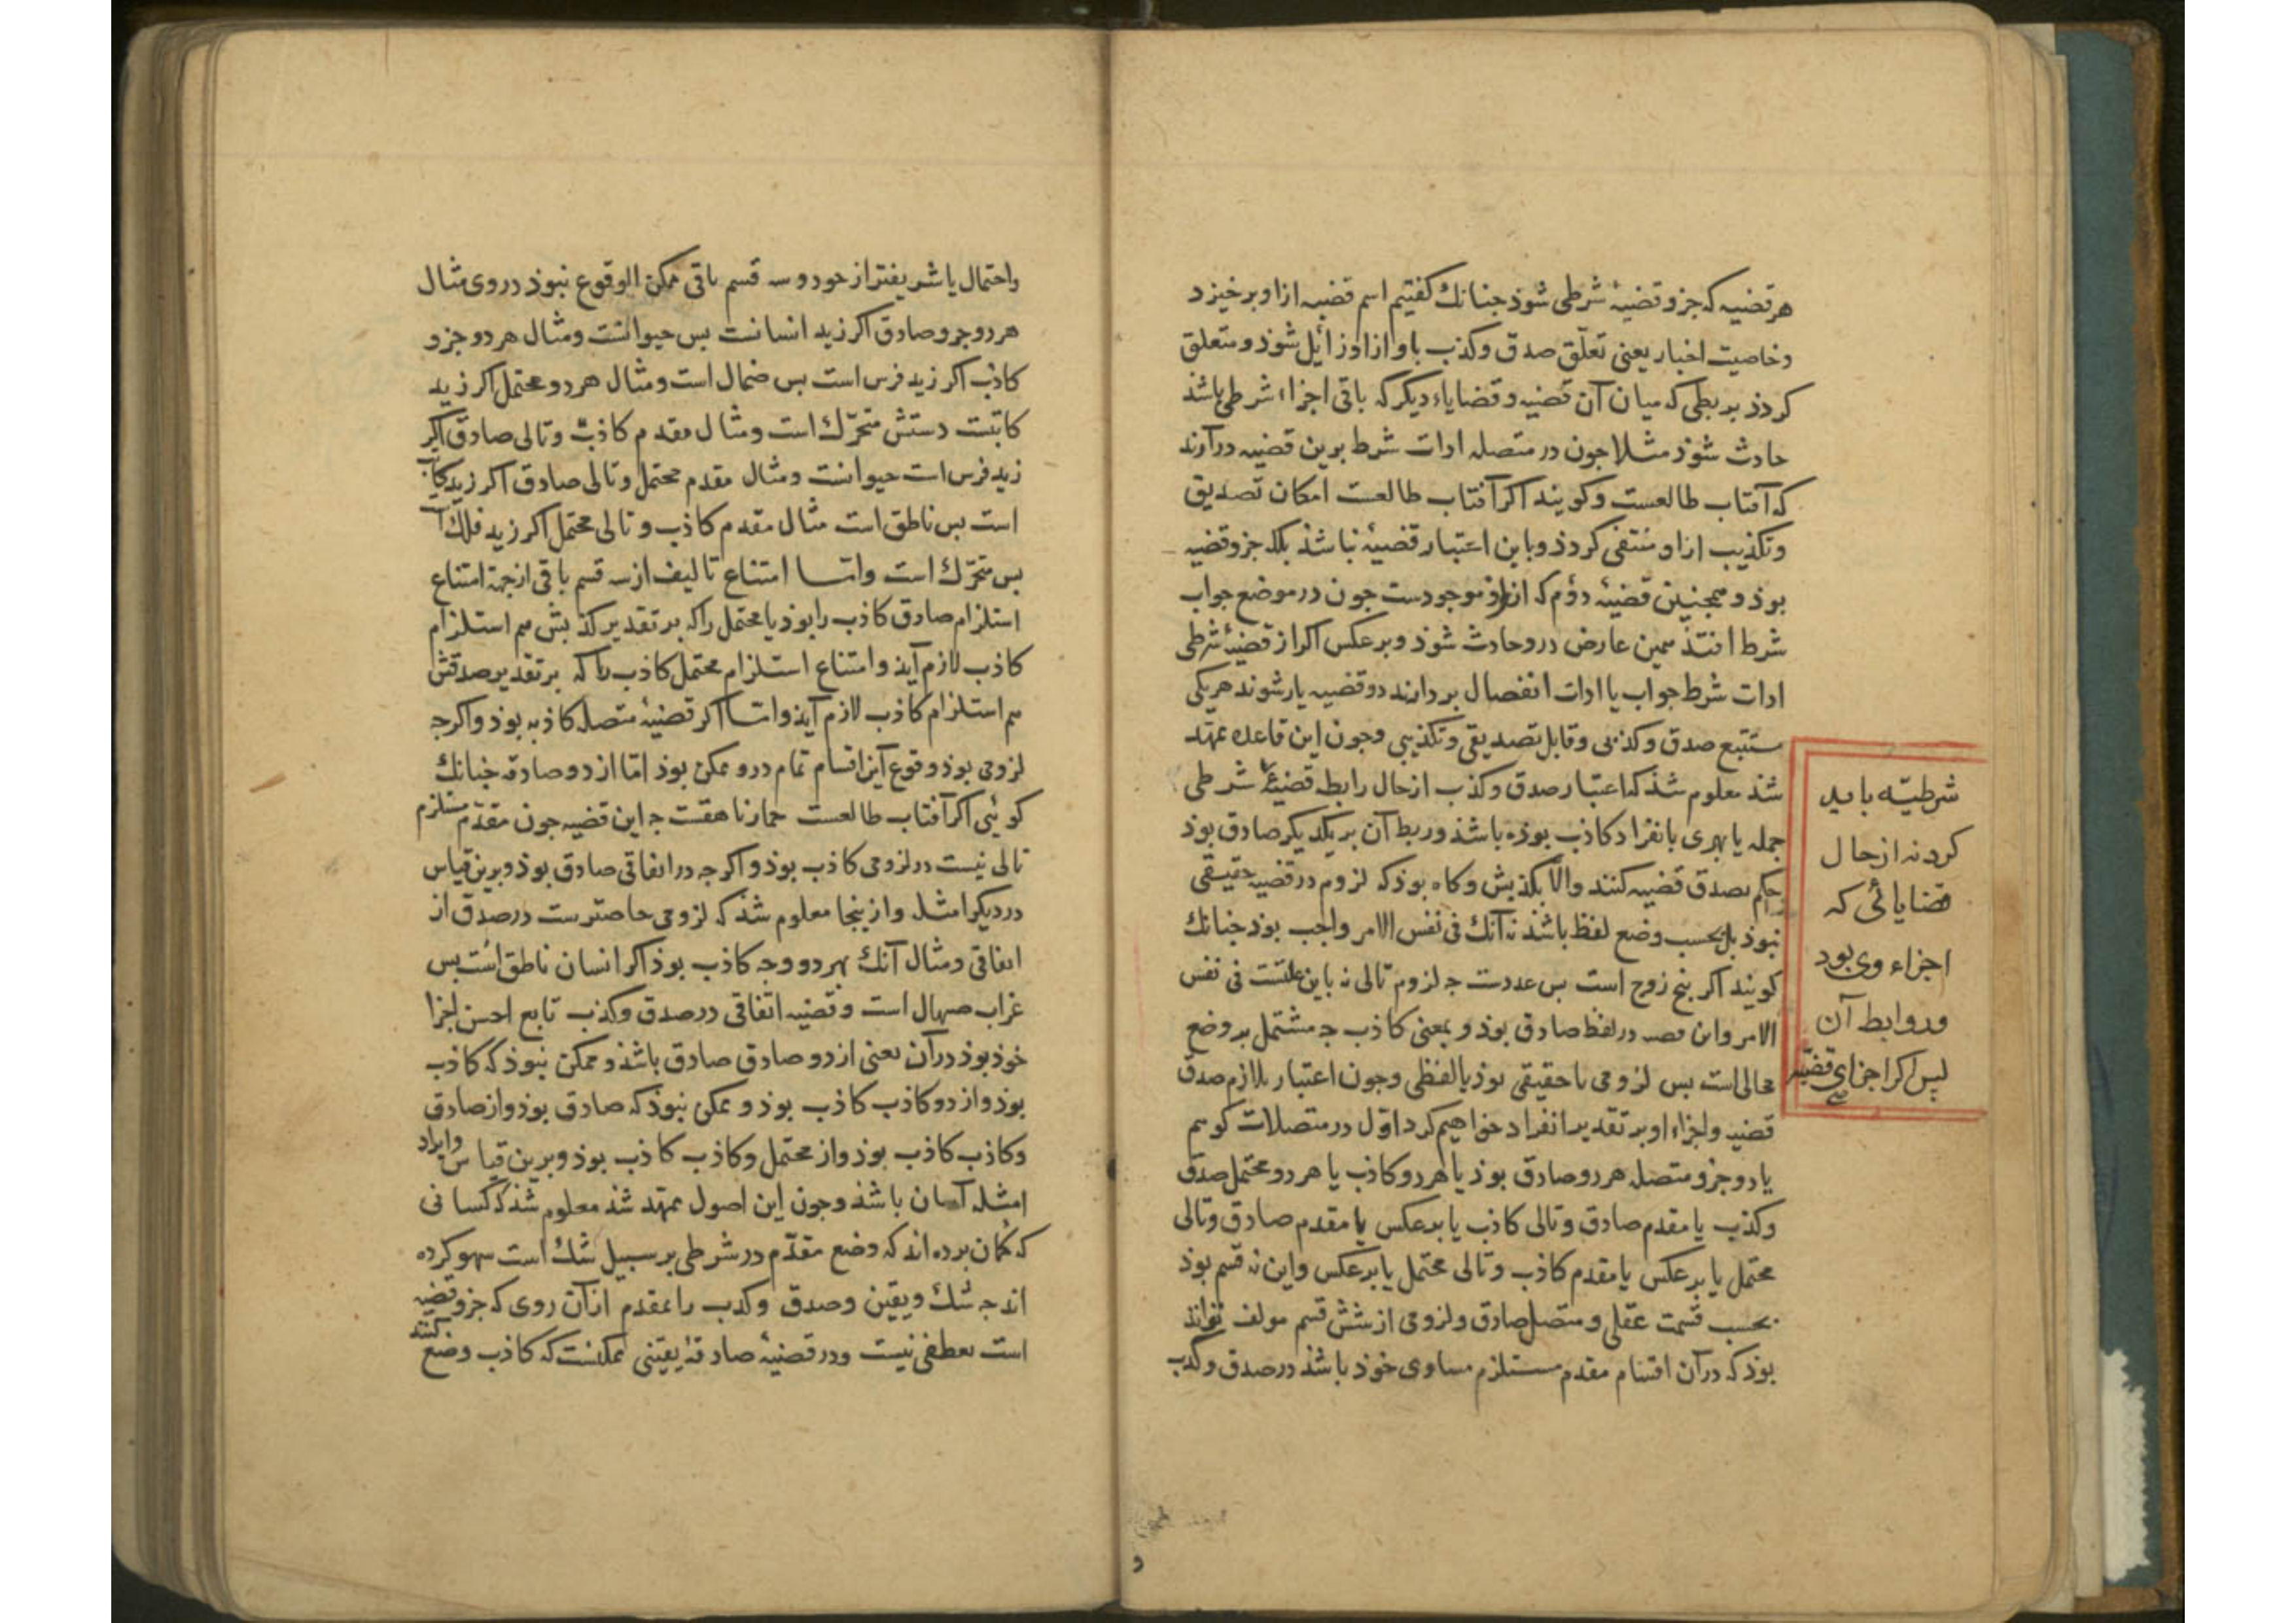 هر قضیه که جزو قضیهٔ شرطی شوذ جنانك کفتیم اسم قضیه ازاو برخیزد
وخاصیت اخبار یعنی تعلّق صدق وکذب باو ازاو زائل شوذ ومتعلق
کردذ بربطی که میان آن قضیه وقضایاء دیکر که باقی اجزاء شرطی باشذ
حادث شوذ مثلا جون در متصله ادات شرط برین قضیه درآرند
که آفتاب طالعست وکویند اکر آفتاب طالعست امکان تصدیق
وتکذیب ازاو منتفی کردذ وباین اعتبار قضیهٔ نباشذ بلکه جزو قضیه
بوذ وهمجنین قضیهٔ دؤم که ازو موجودست جون در موضع جواب
شرط افتذ همین عارض درو حادث شوذ وبرعکس اکر از قضیهٔ شرطی
ادات شرط جواب یا ادات انفصال بردارند دو قضیه یار شوند هریکی
مستتبع صدق وکذبی وقابل تصدیقی وتکذیبی وجون این قاعده ممهد
شذ معلوم شذ که اعتبار صدق وکذب ازحال رابطه قضیهٔ شرطی
جمله یا بهری بانفراد کاذب بوذه باشذ وربط آن بریکدیکر صادق بوذ
حکم بصدق قضیه کنند والّا بکذبش وکاه بوذ که لزوم در قضیه حقیقی
نبوذ بل بحسب وضع لفظ باشذ نه آنك فی نفس الامر واجب بوذ جنانك
کویند اکر پنج زوج است پس عددست جه لزوم تالی نه باین علتست فی نفس
الامر واین قضیه در لفظ صادق بوذ وبمعنی کاذب جه مشتمل بر وضع
محالی است بس لزومی یا حقیقی بوذ یا لفظی وجون اعتبار تلازم صدق
قضیه واجزاء او بر تقدیر انفراد خواهیم کرد اوّل در متصلات کوییم
یا دو جزو متصله هر دو صادق بوذ یا هر دو کاذب یا هر دو محتمل صدق
وکذب یا مقدم صادق وتالی کاذب یا برعکس یا مقدم صادق وتالی
محتمل یا برعکس یا مقدم کاذب وتالی محتمل یا برعکس واین نه قسم بوذ
بحسب قسمت عقلی ومتصل صادق ولزومی از شش قسم مولف تواند
بوذ که درآن اقسام مقدم مستلزم مساوی خوذ باشذ در صدق وکذب
شرطیّه باید
کرد نه ازحال
قضایائی که
اجزاء وی بود
وروابط آن
پس اکر اجزای قضیّه
واحتمال یا شریفتر از خود وسه قسم باقی ممکن الوقوع نبوذ دروی مثال
هر دو جزو صادق اکر زید انسانست بس حیوانست ومثال هر دو جزو
کاذب اکر زید فرس است بس صهال است ومثال هر دو محتمل اکر زید
کاتبست دستش متحرّك است ومثال مقدم کاذب وتالی صادق اکر
زید فرس است حیوانست ومثال مقدم محتمل وتالی صادق اکر زید کاتب
است بس ناطق است مثال مقدم کاذب وتالی محتمل اکر زید فلك است
بس متحرّك است واما امتناع تالیف ازسه قسم باقی ازجهة امتناع
استلزام صادق کاذب را بوذ یا محتمل را که بر تقدیر کذبش هم استلزام
کاذب لازم آیذ وامتناع استلزام محتمل کاذب را که بر تقدیر صدقش
هم استلزام کاذب لازم آیذ واما اکر قضیهٔ متصله کاذبه بوذ واکرجه
لزومی بوذ وقوع این اقسام تمام درو ممکن بوذ امّا از دو صادقه جنانك
کوئی اکر آفتاب طالعست حمار ناهقست جه این قضیه جون مقدم مستلزم
تالی نیست در لزومی کاذب بوذ واکرجه در اتفاقی صادق بوذ وبرین قیاس
در دیکر امثله وازینجا معلوم شذ که لزومی خاصترست در صدق از
اتفاقی ومثال آنك بهر دو وجه کاذب بوذ اکر انسان ناطق است بس
غراب صهال است وقضیه اتفاقی در صدق وکذب تابع احسن اجزا
خوذ بوذ درآن یعنی از دو صادق صادق باشذ وممکن نبوذ که کاذب
بوذ واز دو کاذب کاذب بوذ وممکن نبوذ که صادق بوذ واز صادق
وکاذب کاذب بوذ واز محتمل وکاذب کاذب بوذ وبرین قیاس وایراد
امثله آسان باشذ وجون این اصول ممهد شذ معلوم شذ که کسانی
که کمان برده اند که وضع مقدّم در شرطی بر سبیل شك است سهو کرده
اند جه شك ویقین وصدق وکذب را بمقدم ازآن روی که جزو قضیه
است تعطفی نیست ودر قضیهٔ صادقهٔ یقینی ممکنست که کاذب وضع کنند